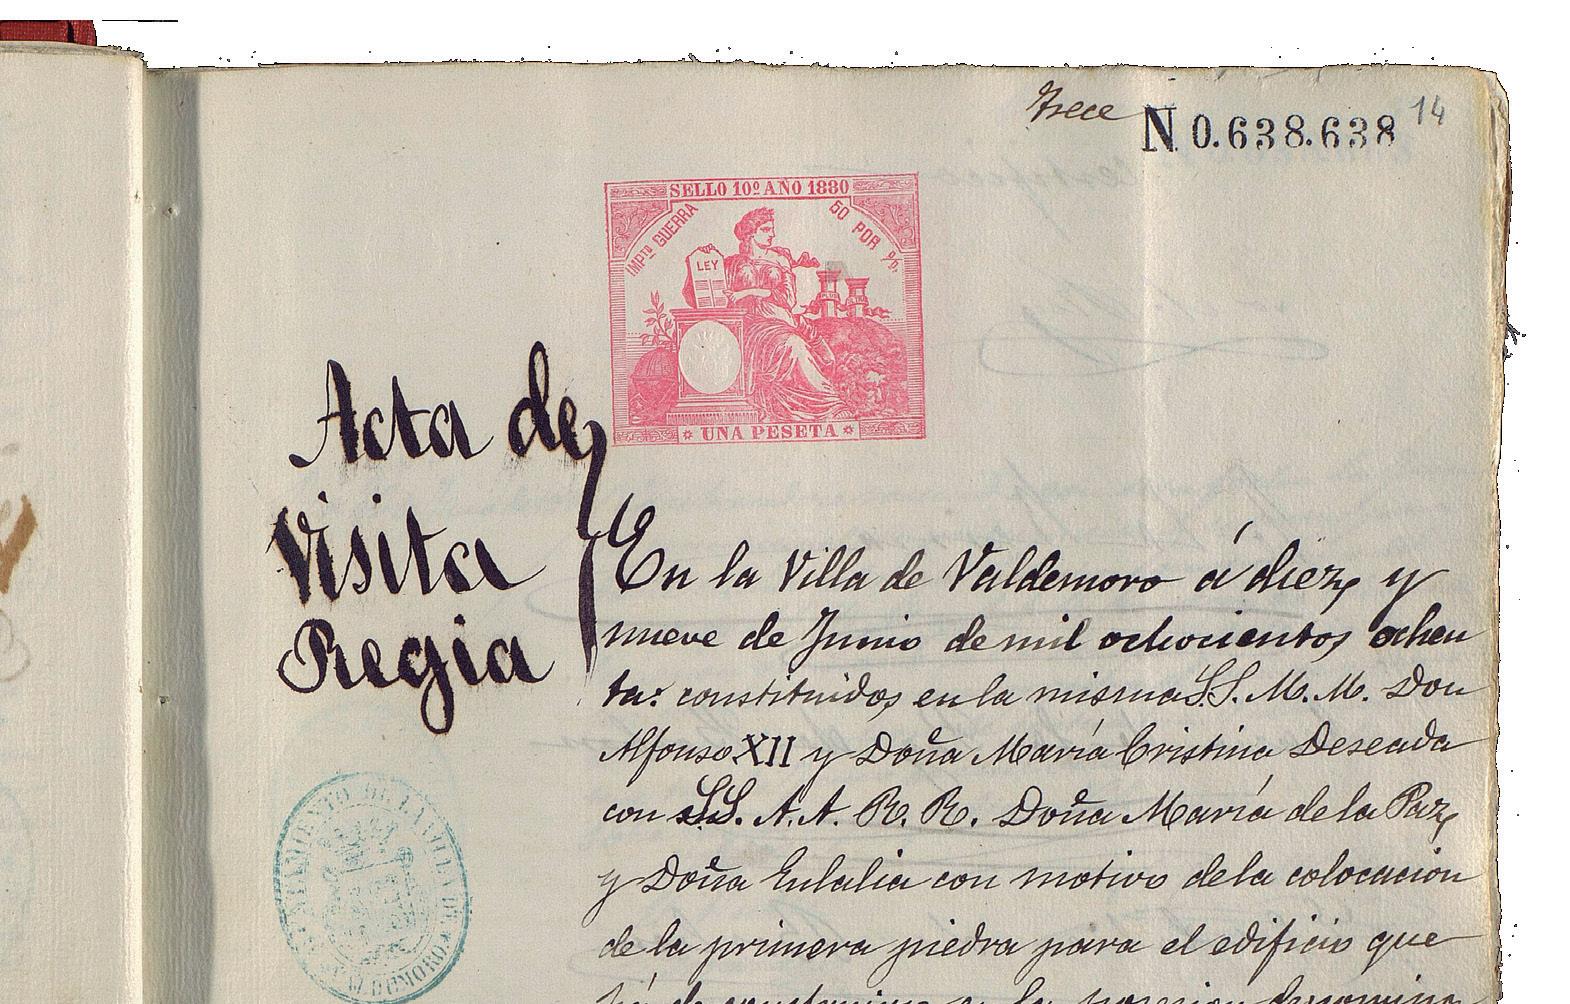 Trece
N 0.638.638
14
SELLO 10º AÑO 1880
IMPTO GUERRA
50 POR %.
LEY
UNA PESETA
Acta de
Visita
Regia
En la Villa de Valdemoro á diez y
nueve de Junio de mil ochocientos ochen
ta: constituidos en la misma S.S. M.M. Don
Alfonso XII y Doña María Cristina Deseada
con SS. A.A. R.R. Doña María de la Paz
y Doña Eulalia con motivo de la colocacion
de la primera piedra para el edificio que
há de construirse en la posesion denomina
AYUNTAMIENTO DE LA VILLA DE VALDEMORO